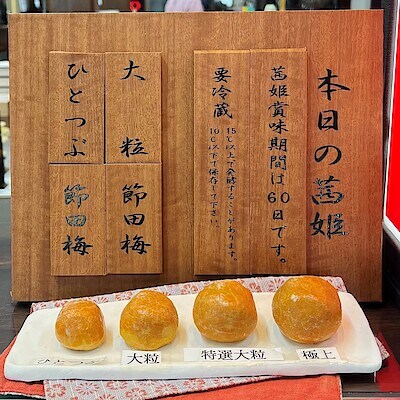 本日の茜姫
茜姫賞味期間は60日です。
要冷蔵
15℃以上で発酵することがあります。
10℃以下で保存して下さい。
大粒
節田梅
ひとつぶ
節田梅
ひとつぶ
大粒
特選大粒
極上